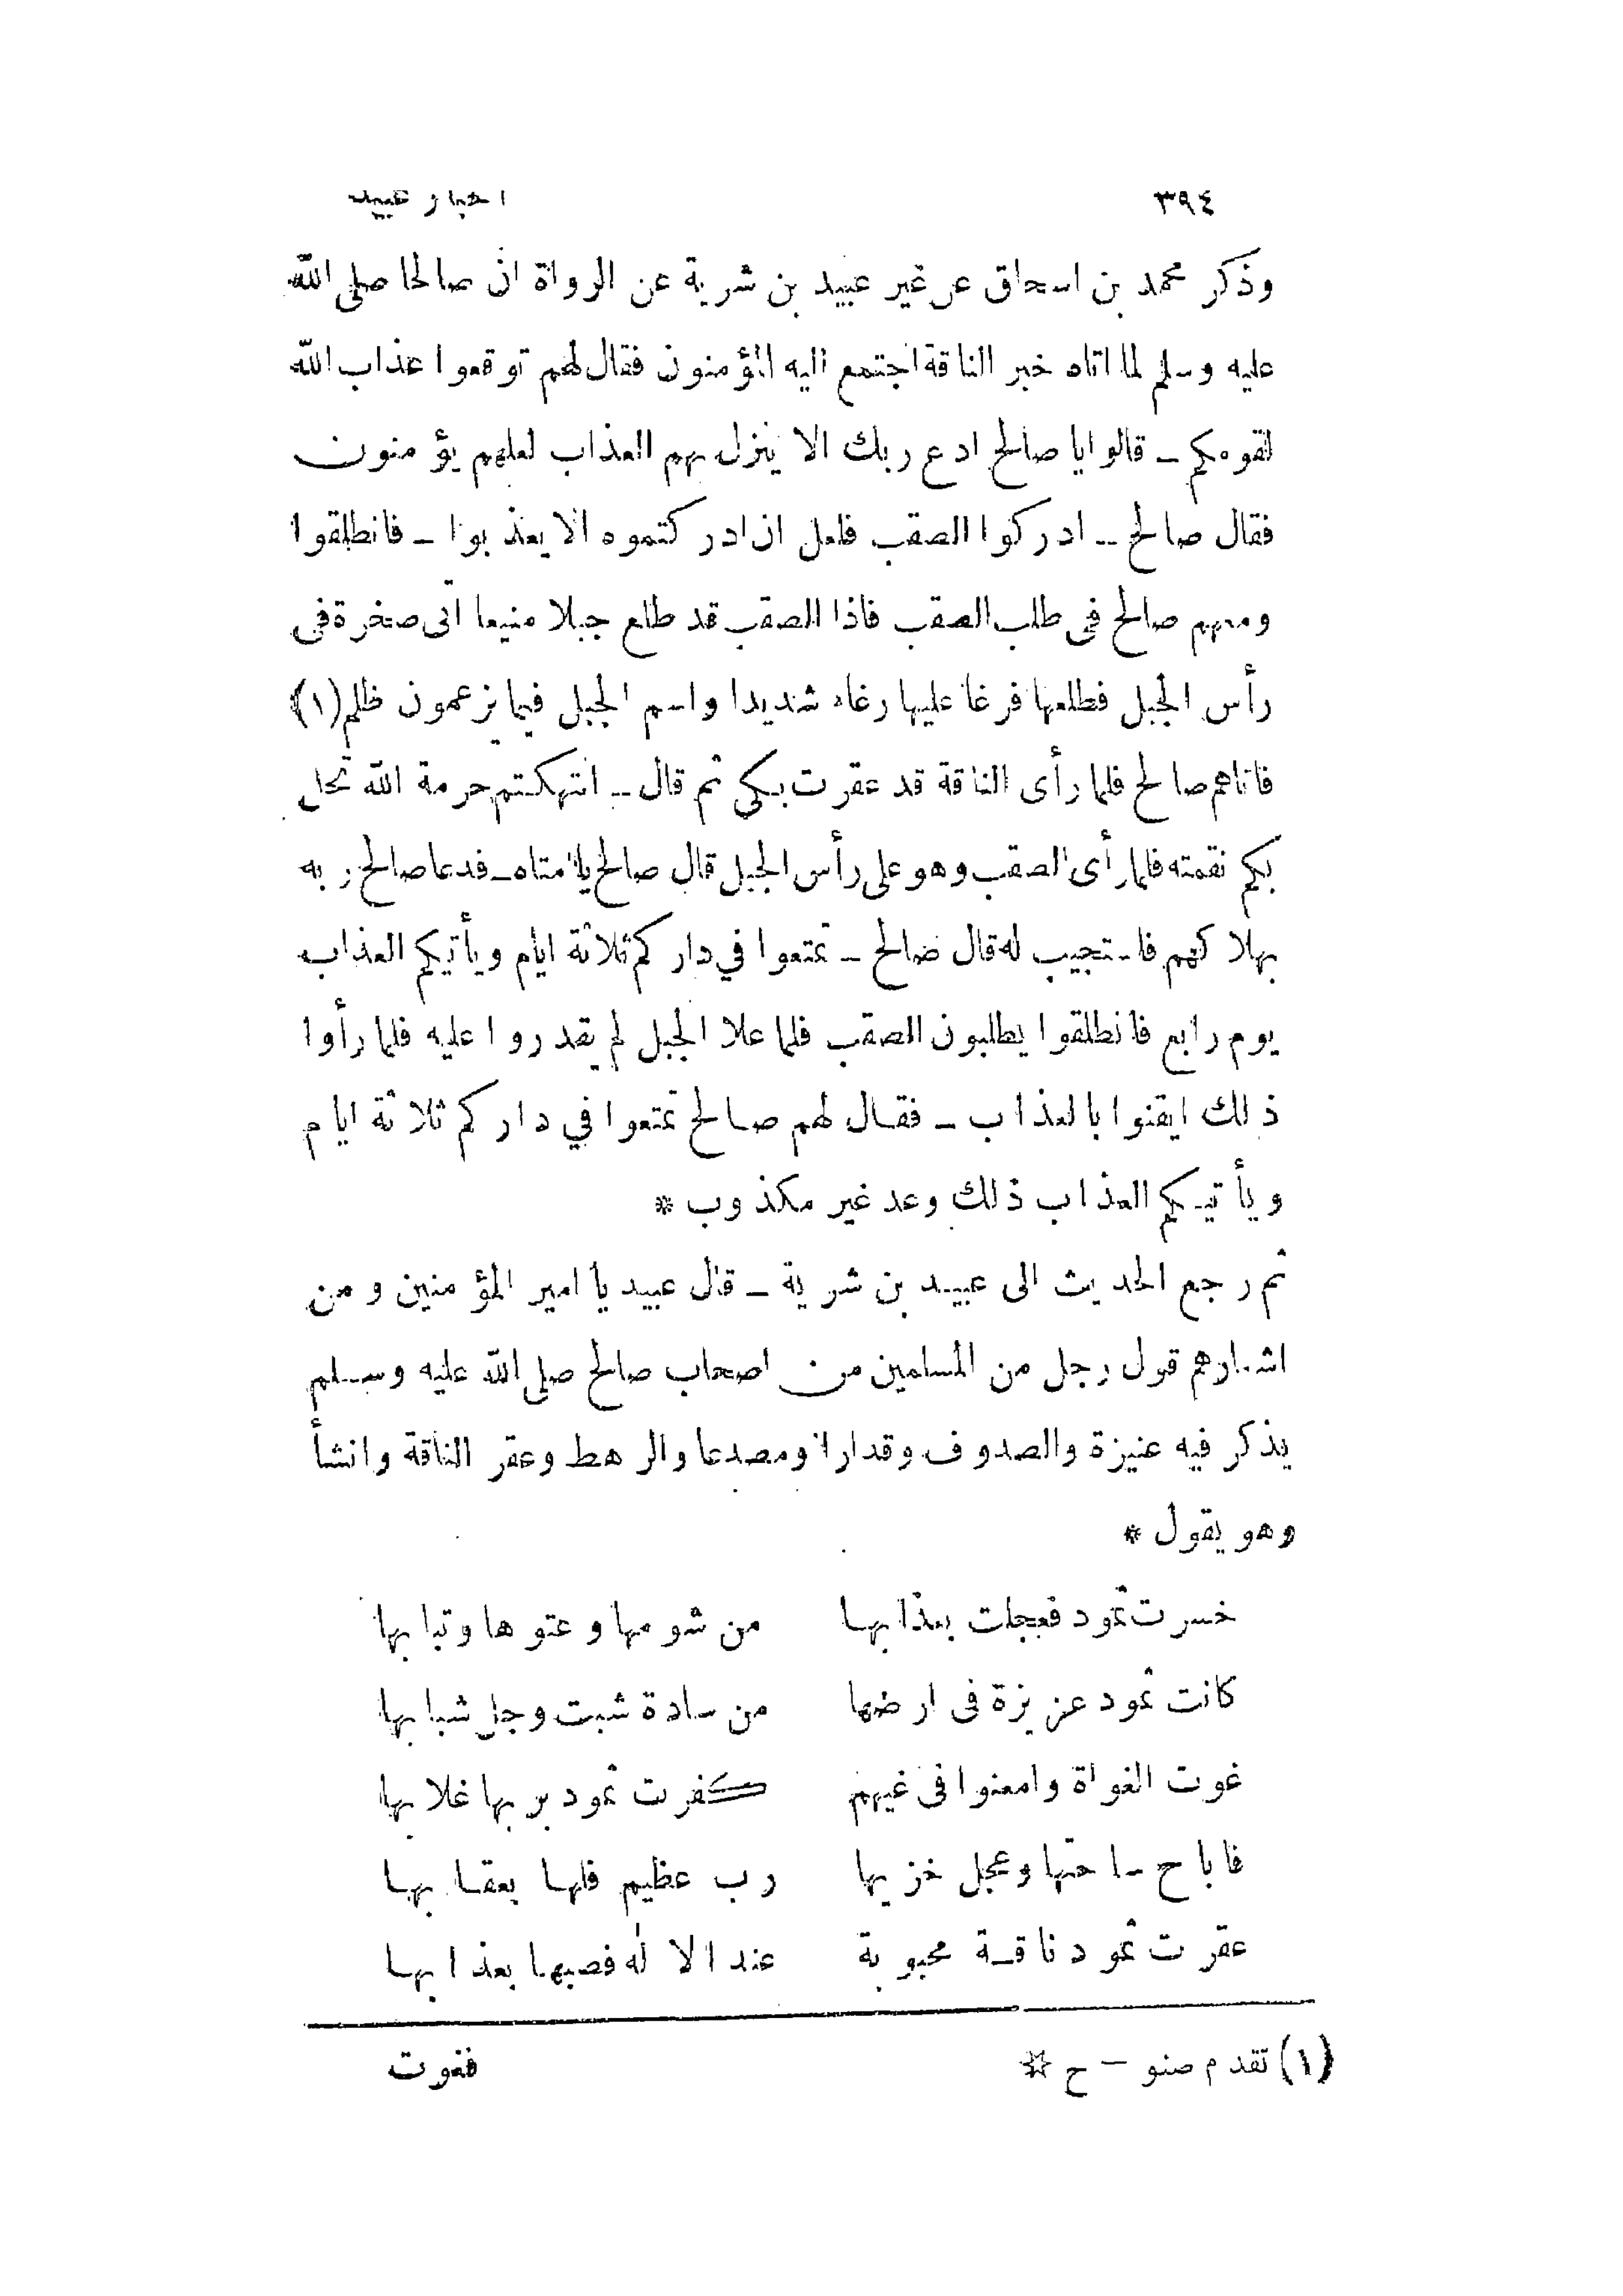 ٣٩٤ اخبار عبيد
وذكر محمد بن اسحاق عن غير عبيد بن شرية عن الرواة ان صالحا صلى الله
عليه وسلم لما اتاه خبر الناقة اجتمع اليه المؤمنون فقال لهم توقعوا عذاب الله
لقومكم – قالوا يا صالح ادع ربك الا ينزل بهم العذاب لعلهم يؤمنون
فقال صالح – ادركوا الصقب فلعل ان ادركتموه الا يعذبوا – فانطلقوا
ومعهم صالح في طلب الصقب فاذا الصقب قد طلع جبلا منيعا اتى صخرة في
رأس الجبل فطلعها فرغا عليها رغاء شديدا واسم الجبل فيما يزعمون ظلم (١)
فاتاهم صالح فلما رأى الناقة قد عقرت بكى ثم قال – انتهكتم حرمة الله تحل
بكم نقمته فلما رأى الصقب وهو على رأس الجبل قال صالح يا امتاه – فدعا صالح ربه
بهلاكهم فاستجيب له قال صالح – تمتعوا في داركم ثلاثة ايام ويأتيكم العذاب
يوم رابع فانطلقوا يطلبون الصقب فلما علا الجبل لم يقدروا عليه فلما رأوا
ذلك ايقنوا بالعذاب – فقال لهم صالح تمتعوا في داركم ثلاثة ايام
ويأتيكم العذاب ذلك وعد غير مكذوب *
ثم رجع الحديث الى عبيد بن شرية – قال عبيد يا امير المؤمنين ومن
اشعارهم قول رجل من المسلمين من اصحاب صالح صلى الله عليه وسلم
يذكر فيه عنيزة والصدوف وقدارا ومصدعا والرهط وعقر الناقة وانشأ
وهو يقول *
خسرت ثمود فعجلت بعذابها من شومها وعتوها وتبابها
كانت ثمود عزيزة في ارضها من سادة شبت وجل شبابها
غوت الغواة وامعنوا في غيهم كفرت ثمود بربها غلابها
فاباح ساحتها وعجل خزيها رب عظيم فلها بعقابها
عقرت ثمود ناقة محبوبة عند الاله فصبها بعذابها
(١) تقدم صنو – ح * فغوت